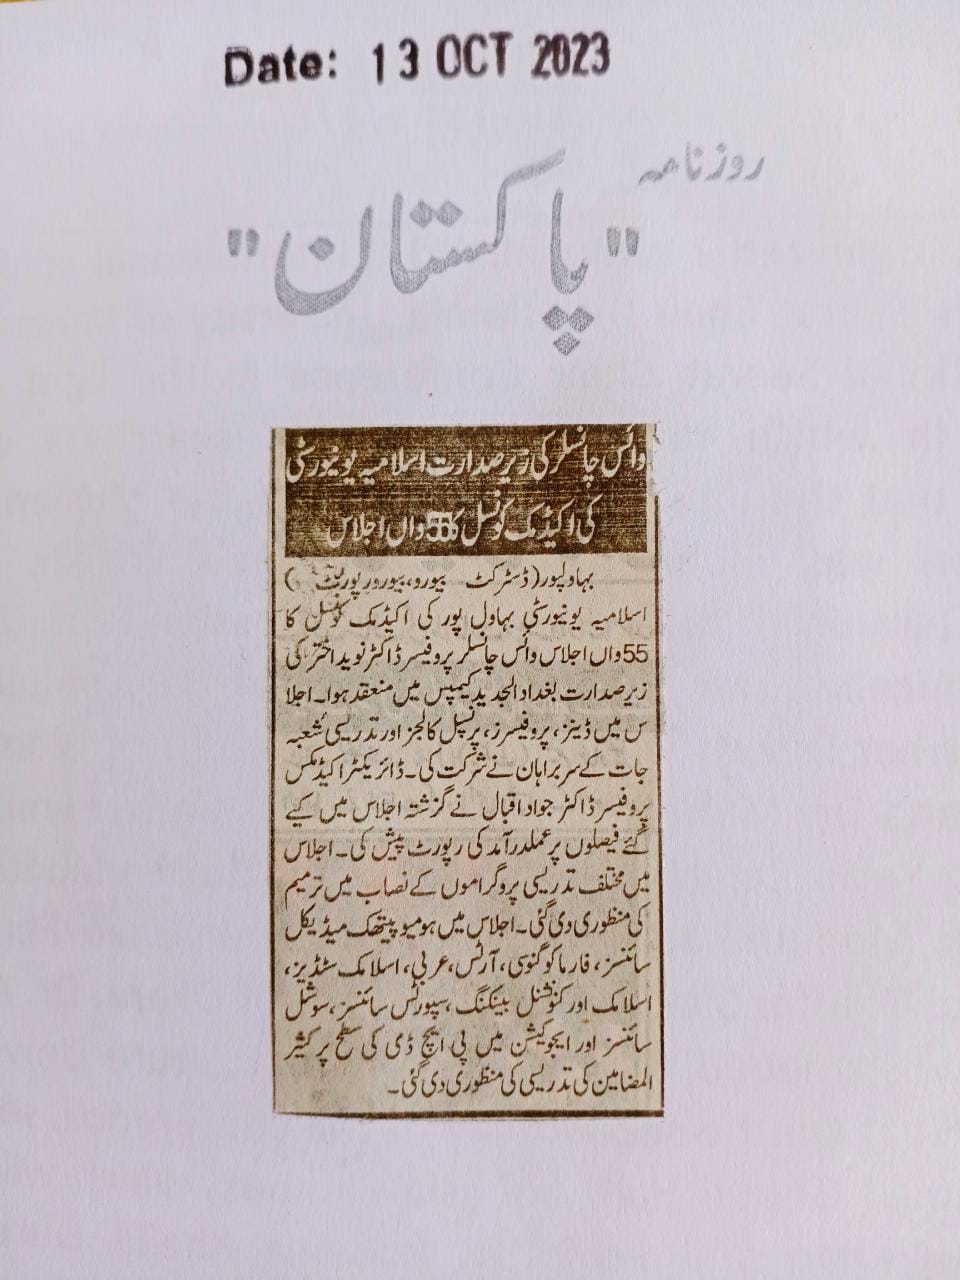 Date: 13 OCT 2023
روزنامہ
"پاکستان"
وائس چانسلر کی زیر صدارت اسلامیہ یونیورسٹی
کی اکیڈمک کونسل کا 55 واں اجلاس
بہاولپور (ڈسٹرکٹ بیورو، بیورورپورٹ)
اسلامیہ یونیورسٹی بہاول پور کی اکیڈمک کونسل کا
55واں اجلاس وائس چانسلر پروفیسر ڈاکٹر نوید اختر کی
زیر صدارت بغداد الجدید کیمپس میں منعقد ہوا۔ اجلا
س میں ڈینز، پروفیسرز، پرنسپل کالجز اور تدریسی شعبہ
جات کے سربراہان نے شرکت کی۔ ڈائریکٹر اکیڈمکس
پروفیسر ڈاکٹر جواد اقبال نے گزشتہ اجلاس میں کیے
گئے فیصلوں پر عملدرآمد کی رپورٹ پیش کی۔ اجلاس
میں مختلف تدریسی پروگراموں کے نصاب میں ترمیم
کی منظوری دی گئی۔ اجلاس میں ہومیو پیتھک میڈیکل
سائنسز، فارما کوگنوسی، آرٹس، عربی، اسلامک سٹڈیز،
اسلامک اور کنونشنل بینکنگ، سپورٹس سائنسز، سوشل
سائنسز اور ایجوکیشن میں پی ایچ ڈی کی سطح پر کثیر
المضامین کی تدریسی کی منظوری دی گئی۔